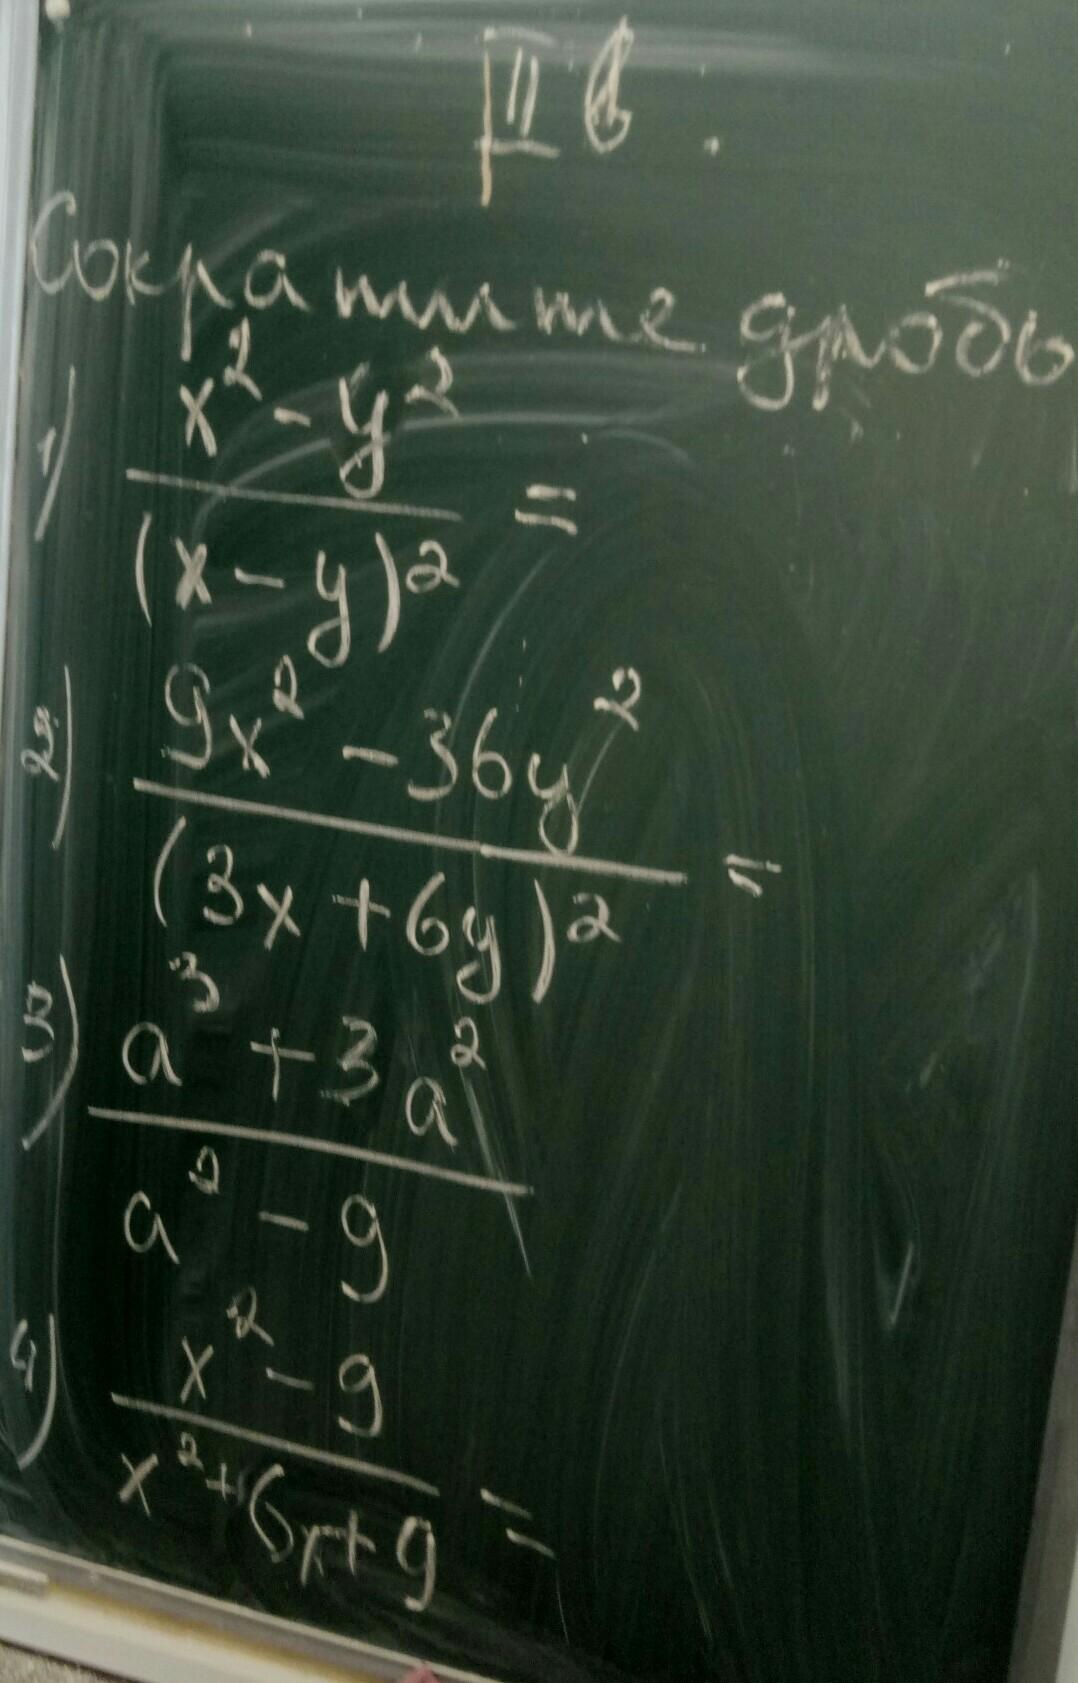 II в.
Сократите дробь
1) x² - y²
(x - y)² =
2) 9x² - 36y²
(3x + 6y)² =
3) a³ + 3a²
a² - 9
4) x² - 9
x² + 6x + 9 =